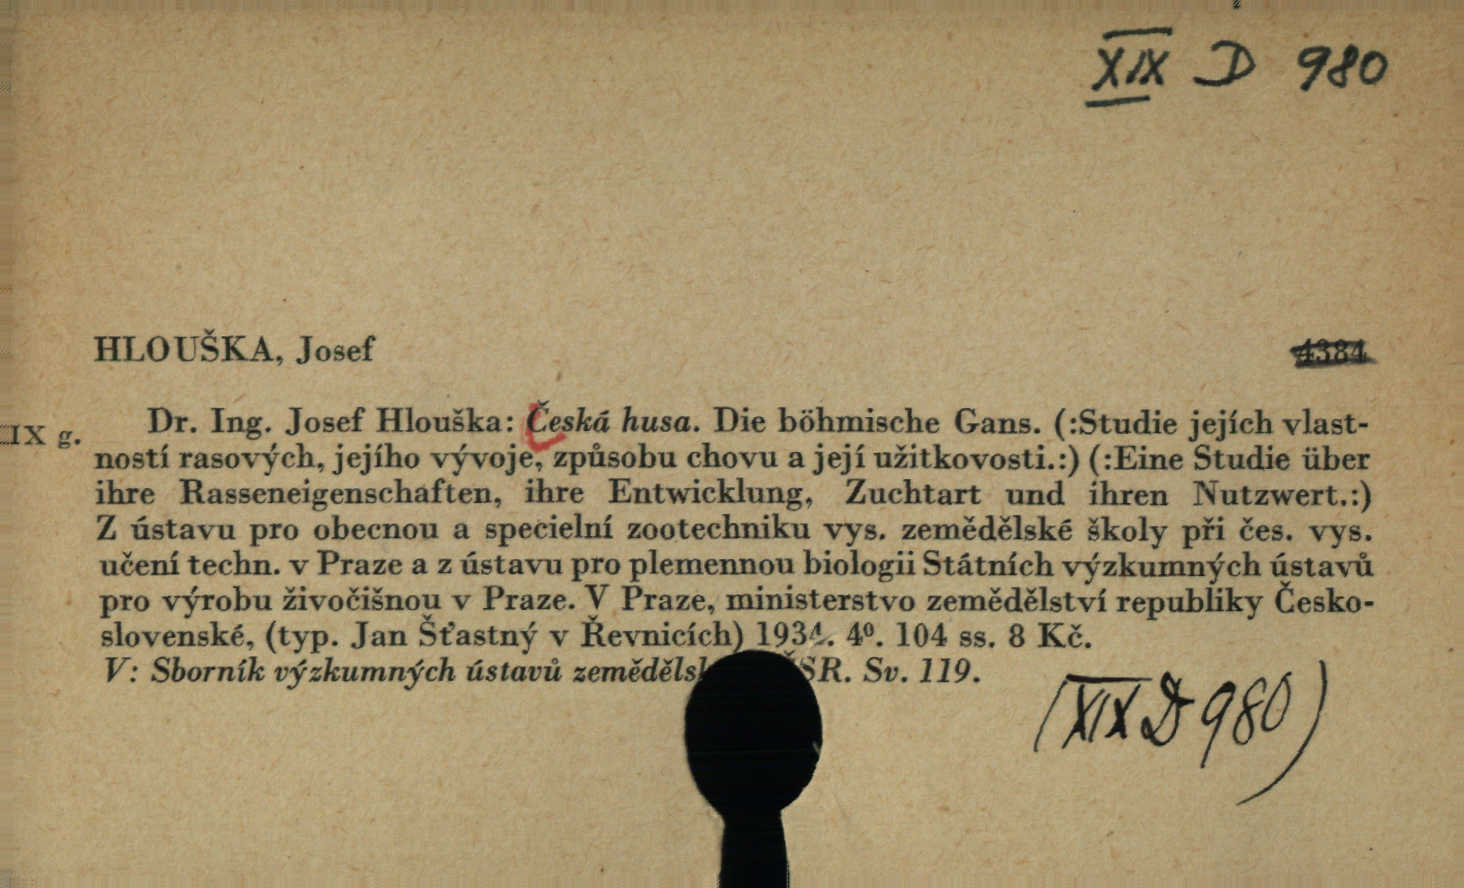 XIX D 980
HLOUŠKA, Josef
4384
IX g.
Dr. Ing. Josef Hlouška: Česká husa. Die böhmische Gans. (:Studie jejích vlast-
ností rasových, jejího vývoje, způsobu chovu a její užitkovosti.:) (:Eine Studie über
ihre Rasseneigenschaften, ihre Entwicklung, Zuchtart und ihren Nutzwert.:)
Z ústavu pro obecnou a specielní zootechniku vys. zemědělské školy při čes. vys.
učení techn. v Praze a z ústavu pro plemennou biologii Státních výzkumných ústavů
pro výrobu živočišnou v Praze. V Praze, ministerstvo zemědělství republiky Česko-
slovenské, (typ. Jan Šťastný v Řevnicích) 1934. 4⁰. 104 ss. 8 Kč.
V: Sborník výzkumných ústavů ČSR. Sv. 119.
(XIX D 980)